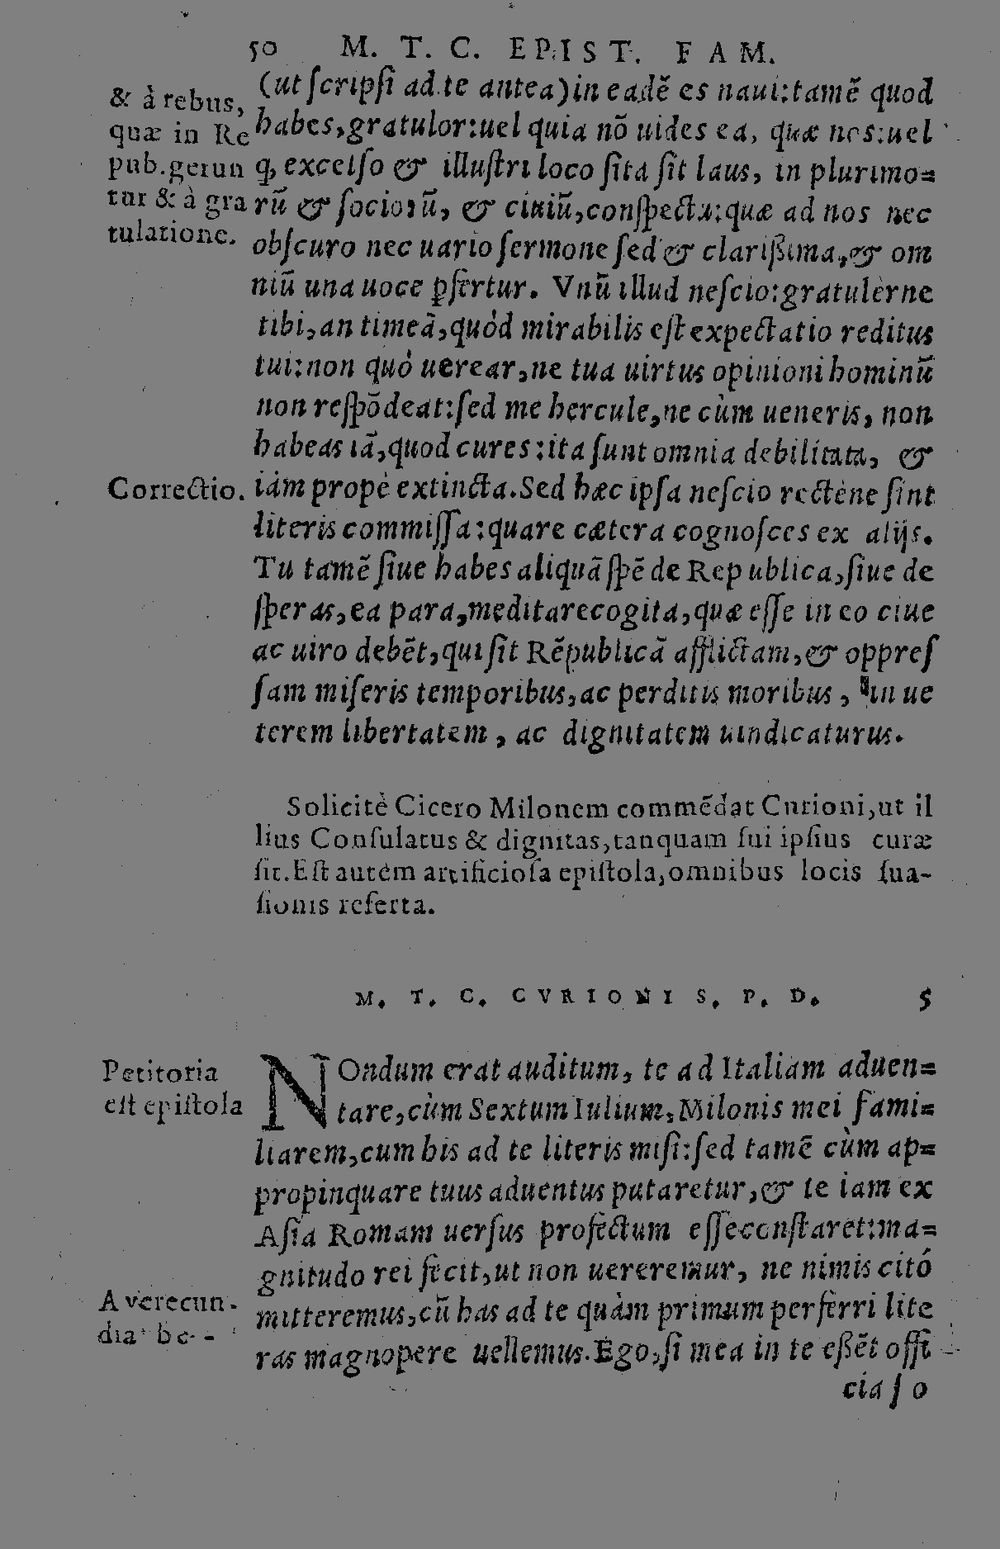 50 M. T. C. EPIST. FAM.
& à rebus,
quæ in Re
pub.gerun
tur & à gra
tulatione.
(ut ſcripſi ad te antea) in eadẽ es naui:tamẽ quod
habes,gratulor:uel quia nõ uides ea, quæ nos:uel
q, excelſo & illuſtri loco ſita ſit laus, in plurimo=
rũ & ſociorũ, & ciuiũ,conſpectu:quæ ad nos nec
obſcuro nec uario ſermone ſed & clarißima,& om
niũ una uoce ꝑfertur. Vnũ illud neſcio:gratulèrne
tibi,an timeã,quòd mirabilis eſt expectatio reditus
tui:non quò uerear,ne tua uirtus opinioni hominũ
non reſpõdeat:ſed me hercule,ne cùm ueneris, non
habeas iã,quod cures:ita ſunt omnia debilitata, &
Correctio.
iàm propè extincta.Sed hæc ipſa neſcio rectène ſint
literis commiſſa:quare cætera cognoſces ex alijs.
Tu tamẽ ſiue habes aliquã ſpẽ de Republica,ſiue de
ſperas,ea para,meditare cogita,quæ eſſe in eo ciue
ac uiro debẽt,qui ſit Rẽpublicã afflictam,& oppreſ
ſam miſeris temporibus,ac perditis moribus, in ue
terem libertatem, ac dignitatem uindicaturus.
Solicitè Cicero Milonem commẽdat Curioni,ut il
lius Conſulatus & dignitas,tanquam ſui ipſius curæ
ſit.Eſt autem artificioſa epiſtola,omnibus locis ſua-
ſionis referta.
M. T. C. CVRIONI S. P. D. 5
Petitoria
eſt epiſtola
NOndum erat auditum, te ad Italiam aduen=
tare,cùm Sextum Iulium,Milonis mei fami=
liarem,cum his ad te literis miſi:ſed tamẽ cùm ap=
propinquare tuus aduentus putaretur,& te iam ex
Aſia Romam uerſus profectum eſſe conſtaret:ma=
gnitudo rei fecit,ut non uereremur, ne nimis citò
A verecun-
dia
mitteremus,cũ has ad te quàm primum perferri lite
ras magnopere uellemus.Ego,ſi mea in te eßẽt offi
cia ſo